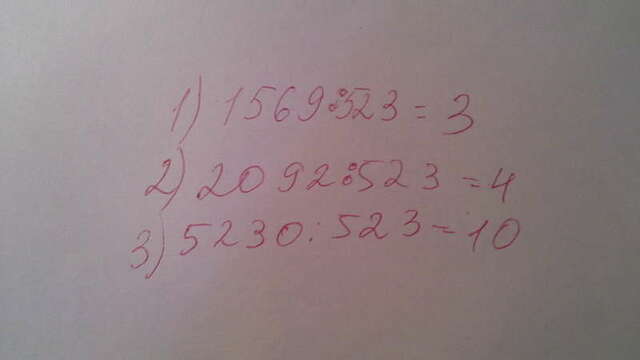 1) 1569:523 = 3
2) 2092:523 = 4
3) 5230:523 = 10